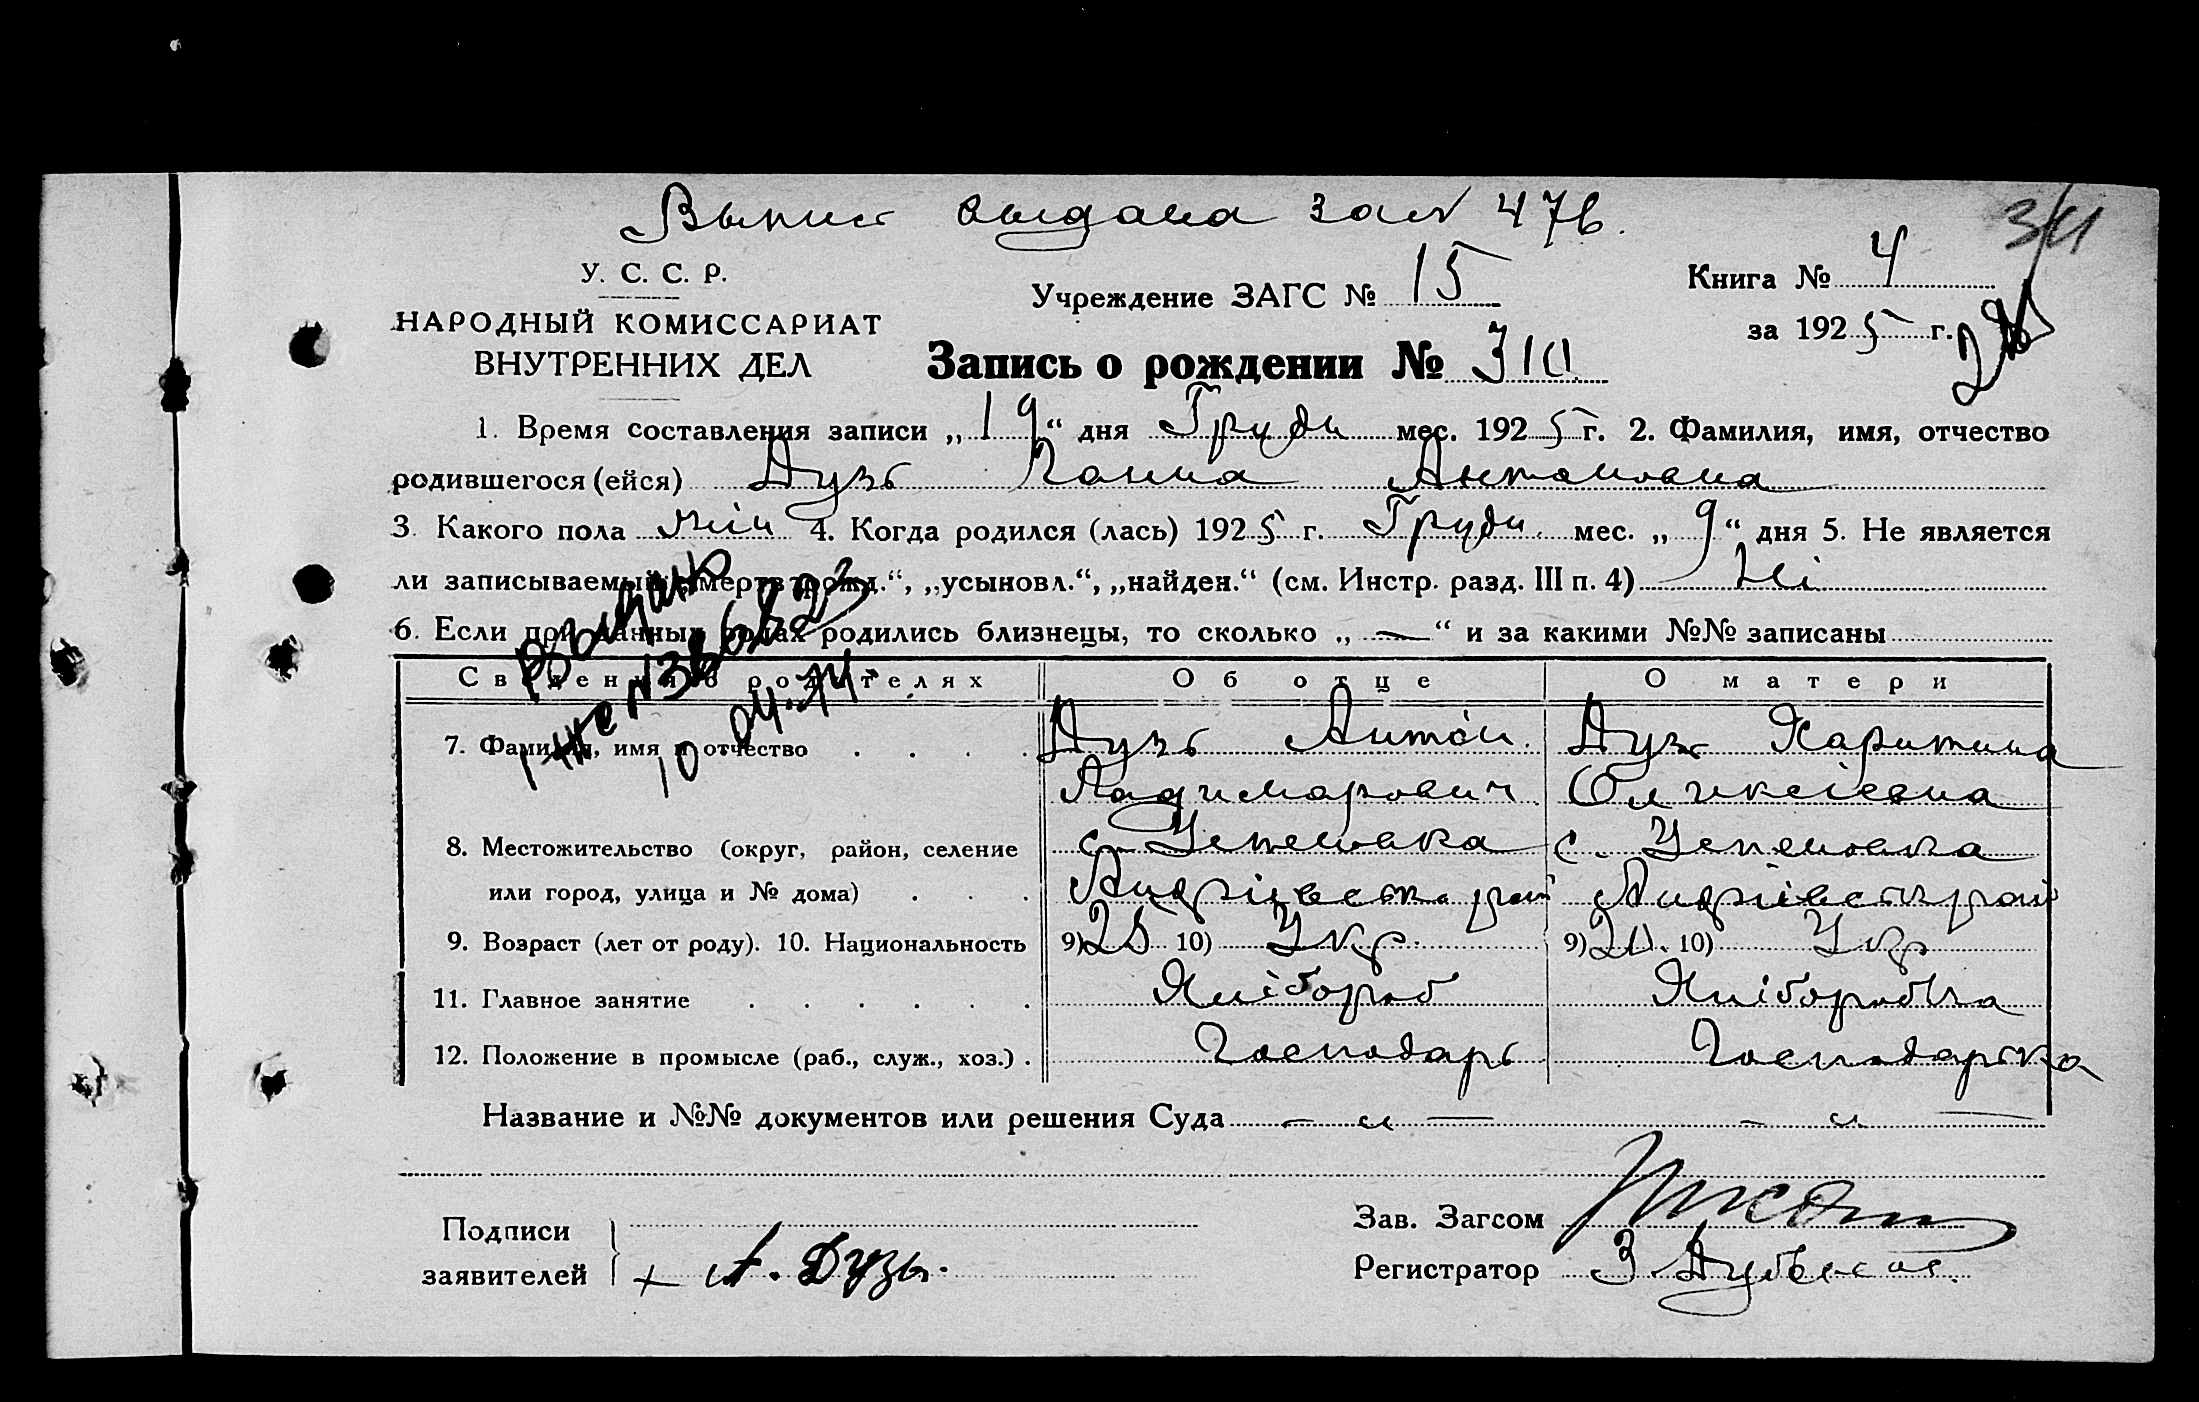 Выпис выдана за № 476.
34
У. С. С. Р.
НАРОДНЫЙ КОМИССАРИАТ
ВНУТРЕННИХ ДЕЛ
Учреждение ЗАГС № 15
Книга № 4
за 1925 г.
Запись о рождении № 310
1. Время составления записи „19“ дня Груди мес. 1925 г. 2. Фамилия, имя, отчество
родившегося (ейся) Дузь Ганна Антоновна
3. Какого пола жін 4. Когда родился (лась) 1925 г. Груди мес. „9“ дня 5. Не является
ли записываемый „мертворожд.“, „усыновл.“, „найден.“ (см. Инстр. разд. III п. 4) Ні
6. Если при данных родах родились близнецы, то сколько „ — “ и за какими №№ записаны
Выдано
10 04.74
Сведения о родителях Об отце О матери
7. Фамилия, имя и отчество . . . . Дузь Антон Дузь Харитина
Ладимарович Олексіевна
8. Местожительство (округ, район, селение с. Успеновка с. Успеновка
или город, улица и № дома) . . . Андріівськ. рай Андріівськ рай
9. Возраст (лет от роду). 10. Национальность 9) 25 10) Укр. 9) 20. 10) Укр
11. Главное занятие . . . . . . Хлібороб Хліборобка
12. Положение в промысле (раб., служ., хоз.) . Господарь Господарька
Название и №№ документов или решения Суда – „ — – „ —
Подписи
заявителей + А. Дузь.
Зав. Загсом
Регистратор